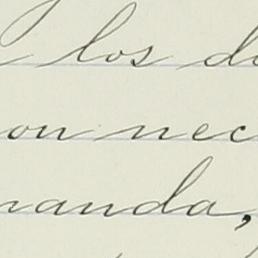 los d
on nec
manda,